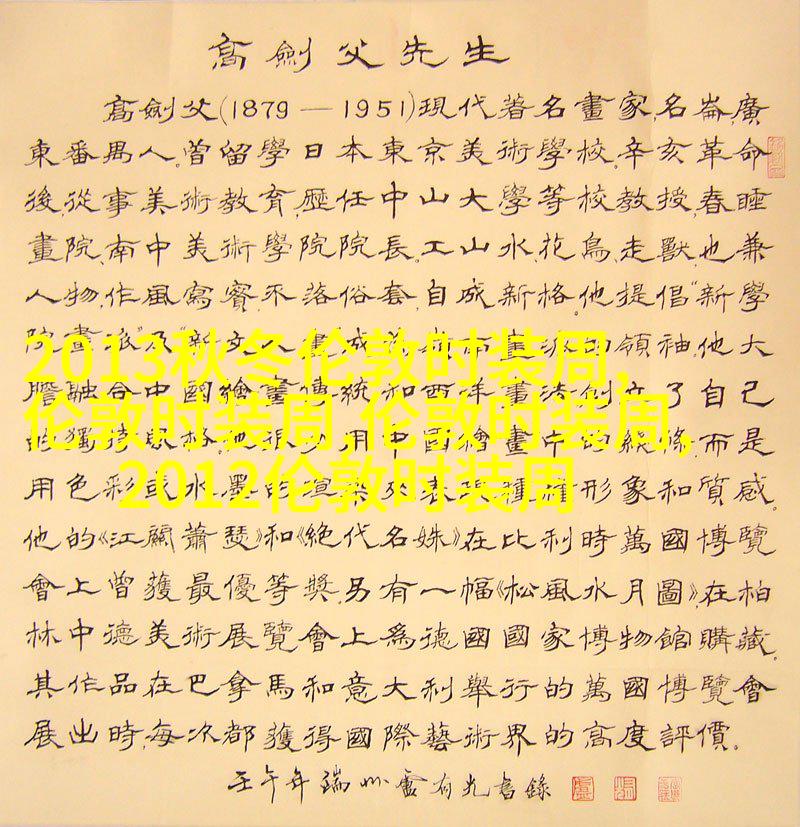 高劍父先生
高劍父(1879—1951)現代著名畫家,名崙,廣
東番禺人。曾留學日本東京美術學校,辛亥革命
後,從事美術教育,歷任中山大學等校教授,春睡
畫院,南中美術學院院長。工山水,花鳥,走獸,也兼
人物,作風寫實,不落俗套,自成新格。他提倡“新學
院畫派”及“新文人畫”,成為嶺南畫派的領袖,他大
膽融合中國繪畫傳統和西洋畫法,創立了自己
的獨特風格,他很少用中國繪畫中的線條,而是
用色彩或水墨的渲染來表現種種形象和質感。
他的《江關蕭瑟》和《絕代名姝》在比利時萬國博覽
會上曾獲最優等獎,另有一幅《松風水月圖》,在柏
林中德美術展覽會上為德國國家博物館購藏。
其作品在巴拿馬和意大利舉行的萬國博覽會
展出時,每次都獲得國際藝術界的高度評價。
壬午年 端州 盧有光書錄
2013秋冬伦敦时装周,
伦敦时装周,伦敦时装周,
2012伦敦时装周